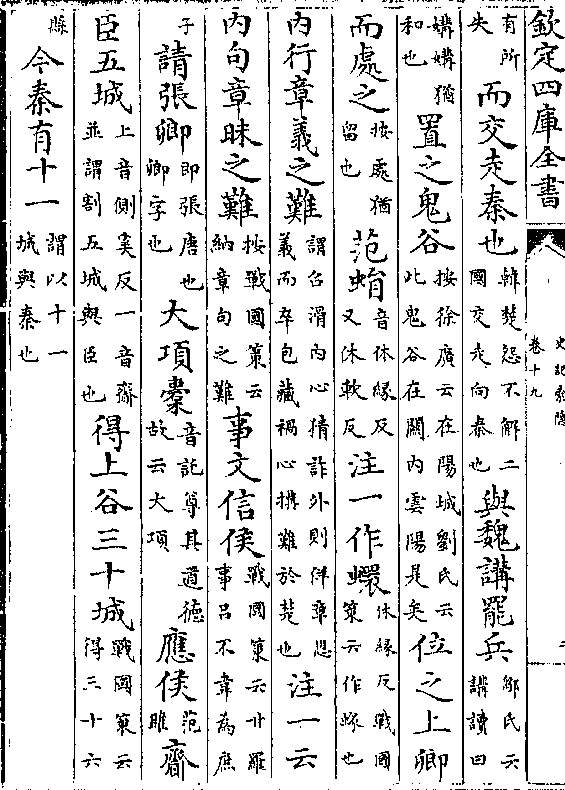 欽定四庫全書
史記索隱
卷十九
二
有所失而交走秦也韓楚怨不解二國交走向秦也與魏講罷兵鄒氏云講讀曰
媾媾猶和也置之鬼谷按徐廣云在陽城劉氏云此鬼谷在關內雲陽是矣位之上卿
而處之按處猶留也范蜎音休緣反又休軟反注一作蠉休緣反戰國策云作蝝也
內行章義之難謂召滑內心猜詐外則佯章恩義而卒包藏禍心搆難於楚也注一云
內句章昧之難按戰國策云納章句之難事文信侯戰國策云甘羅事呂不韋為庶
子請張卿即張唐也卿字也大項橐音託尊其道德故云大項應侯范雎齋
臣五城上音側奚反一音齋並謂割五城與臣也得上谷三十城戰國策云得三十六
縣令秦有十一謂以十一城與秦也